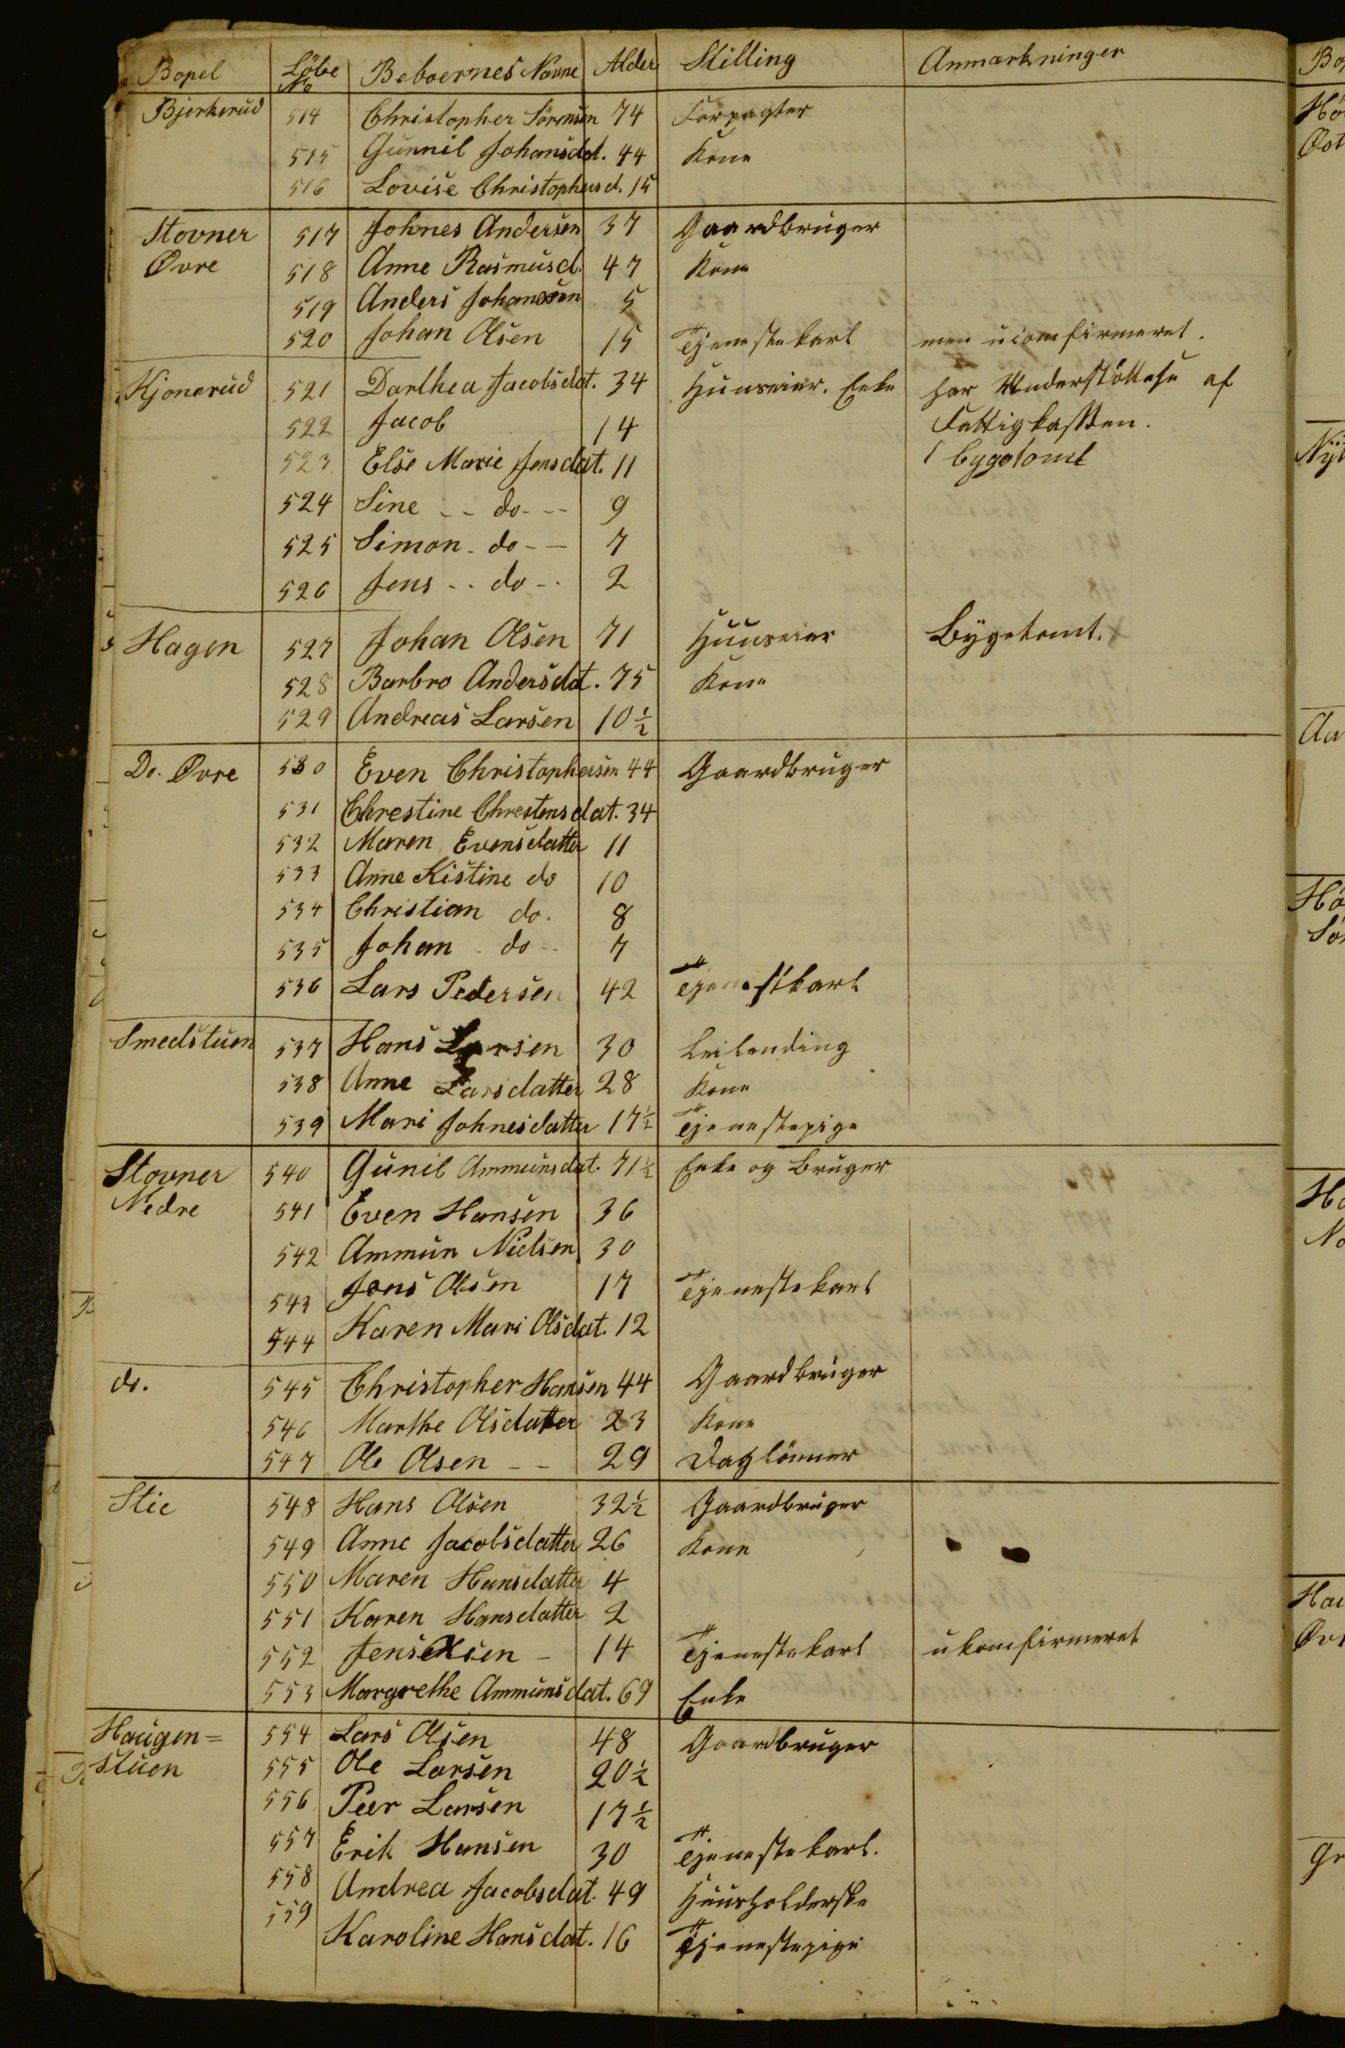 Bopel Løbe No Beboernes Navne Alder Stilling Anmærkninger
Bjerkerud 514 Christopher Sørensen 74 Forpagter
515 Gunnil Johansdat. 44 Kone
516 Lovise Christophersd. 15
Stovner 517 Johnes Andersen 37 Gaardbruger
Øvre 518 Anne Rasmusd. 47 Kone
519 Anders Johansen 5
520 Johan Olsen 15 Tjenestekarl men uconfirmeret.
Kjonerud 521 Dorthea Jacobsdat. 34 Huuseier. Enke har Understøttelse af
522 Jacob 14 Fattigkassen.
523 Else Marie Jensdat. 11 1 bygetomt
524 Sine -- do--- 9
525 Simon - do -- 7
526 Jens -- do -- 2
Hagen 527 Johan Olsen 71 Huuseier Bygetomt.
528 Barbro Andersdat. 75 Kone
529 Andreas Larsen 10½
Do. Øvre 530 Even Christophersen 44 Gaardbruger
531 Chrestine Chrestensdat. 34
532 Maren Evensdatter 11
533 Anne Kistine do 10
534 Christian do. 8
535 Johan - do -- 7
536 Lars Pedersen 42 Tjenestkarl
Smedstuen 537 Hans Larsen 30 Leilending
538 Anne Larsdatter 28 Kone
539 Mari Johnesdatter 17½ Tjenestepige
Stovner 540 Gunil Ammunsdat. 71½ Enke og Bruger
Nedre 541 Even Hansen 36
542 Ammun Nielsen 30
543 Jens Olsen 17 Tjenestekarl
544 Karen Mari Olsdat. 12
do. 545 Christopher Hansen 44 Gaardbruger
546 Marthe Olsdatter 23 Kone
547 Ole Olsen -- 29 Daglønner
Stie 548 Hans Olsen 32½ Gaardbruger
549 Anne Jacobsdatter 26 Kone
550 Maren Hansdatter 4
551 Karen Hansdatter 2
552 Jens Olsen - 14 Tjenestekarl ukonfirmeret
553 Margrethe Ammunsdat. 69 Enke
Haugen= 554 Lars Olsen 48 Gaardbruger
stuen 555 Ole Larsen 20½
556 Peer Larsen 17½
557 Erik Hansen 30 Tjenestekarl.
558 Andrea Jacobsdat. 49 Huusholderske
559 Karoline Hansdat. 16 Tjenestepige